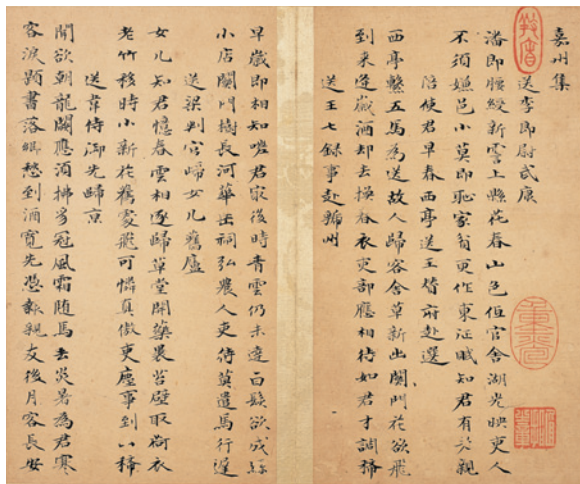 嘉州集
送李郎尉武康
潘郎腰綬新霅上縣花春山色低官舍湖光映吏人
不須嫌邑小莫即恥家貧更作東征賦知君有老親
陪使君早春西亭送王贊府赴選
西亭繫五馬為送故人歸客舍草新出關門花欲飛
到来逢歲酒却去換春衣吏部應相待如君才調稀
送王七録事赴虢州
早歲即相知嗟君最後時青雲仍未達白髮欲成絲
小店關門樹長河華岳祠弘農人吏待莫遣馬行遲
送梁判官歸女几舊廬
女几知君憶春雲相逐歸草堂開藥裹苔壁取荷衣
老竹移時小新花舊處飛可憐真傲吏塵事到稀
送韋侍御先歸京
聞欲朝龍闕應須拂豸冠風霜随馬去炎暑為君寒
客淚題書落鄉愁到酒寬先憑報親友後月客長安